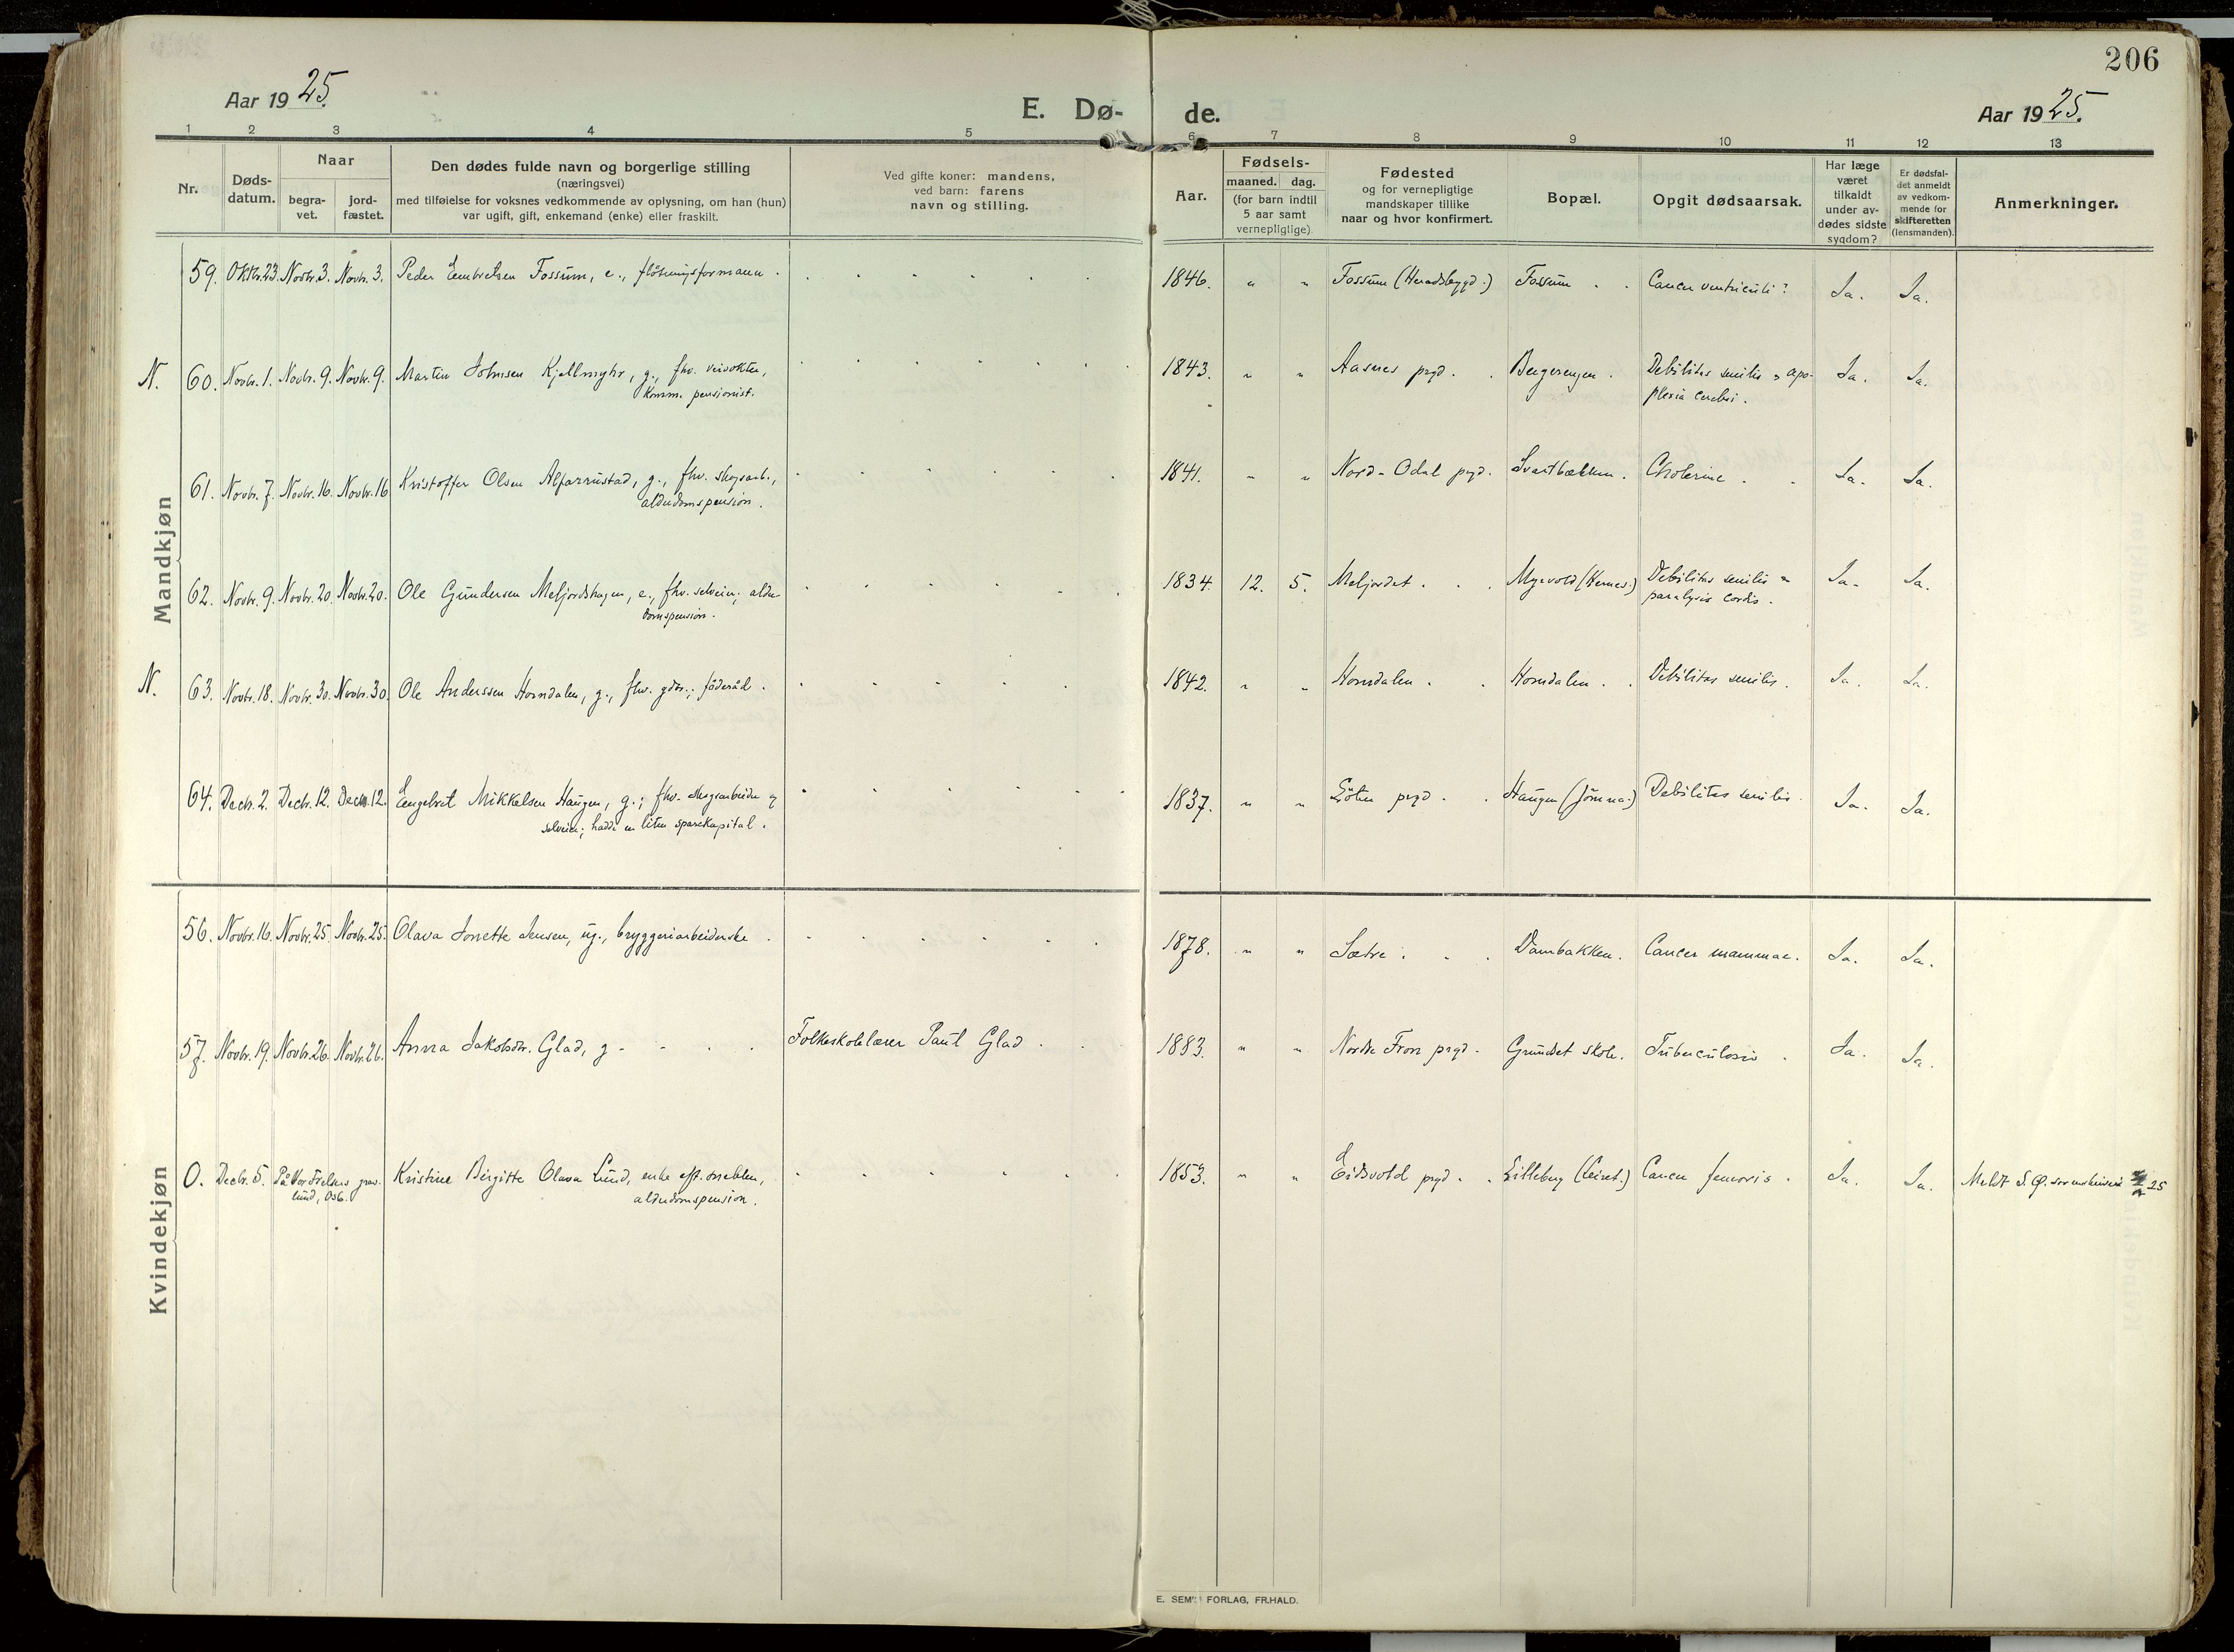 206
Aar 1925.
E. Dø-
de.
Aar 1925.
1 2 3 4 5 6 7 8 9 10 11 12 13
Nr.
Døds-
datum.
Naar
begra-
vet.
jord-
fæstet.
Den dødes fulde navn og borgerlige stilling
(næringsvei)
med tilføielse for voksnes vedkommende av oplysning, om han (hun)
var ugift, gift, enkemand (enke) eller fraskilt.
Ved gifte koner: mandens,
ved barn: farens
navn og stilling.
Aar.
Fødsels-
maaned. dag.
(for barn indtil
5 aar samt
vernepligtige).
Fødested
og for vernepligtige
mandskaper tillike
naar og hvor konfirmert.
Bopæl.
Opgit dødsaarsak.
Har læge
været
tilkaldt
under av-
dødes sidste
sygdom?
Er dødsfal-
det anmeldt
av vedkom-
mende for
skifteretten
(lensmanden).
Anmerkninger.
Mandkjøn
59. Oktbr. 23. Novbr. 3. Novbr. 3. Peder Embretsen Fossum, e., fløtningsformann. 1846. " " Fossum (Heradsbygd.) Fossum Cancer ventriculi? Ja. Ja.
N. 60. Novbr. 1. Novbr. 9. Novbr. 9. Martin Johnsen Kjellmyhr, g., fhv. veivokter, 1843. " " Aasnes prgd. Bergerengen. Debilitas senilis, apo- Ja. Ja.
komm. pensionist. plexia cerebri.
61. Novbr. 7. Novbr. 16. Novbr. 16 Kristoffer Olsen Alfarrustad, g., fhv. skogsarb., 1841. " " Nord-Odal prgd. Svartbækken. Cholerine. Ja. Ja.
alderdomspension.
62. Novbr. 9. Novbr. 20. Novbr. 20. Ole Gundersen Meljordshagen, e., fhv. selveier, alder- 1834. 12. 5. Meljordet. Myrvold (Kernes.) Debilitas senilis Ja. Ja.
domspension. paralysis cordis.
N. 63. Novbr. 18. Novbr. 30. Novbr. 30. Ole Anderssen Horndalen, g., fhv. gdbr.; föderåd. 1842. " " Horndalen. Horndalen. Debilitas senilis. Ja. Ja.
64. Decbr. 2. Decbr. 12. Decbr. 12. Engebret Mikkelsen Haugen, g.; fhv. skogsarbeider og 1837. " " Löten prgd. Haugen (Jömna.) Debilitas senilis. Ja. Ja.
selveier; hadde en liten sparekapital.
Kvindekjøn
56. Novbr. 16. Novbr. 25. Novbr. 25. Olava Jonette Jensen, ug., bryggeriarbeiderske. 1878. " " Sætre. Dambakken. Cancer mammae. Ja. Ja.
57. Novbr. 19. Novbr. 26. Novbr. 26. Anna Jakobsdtr. Glad, g. Folkeskolelærer Paul Glad. 1883. " " Nordre Fron prgd. Grundset skole. Tuberculosis. Ja. Ja.
0. Decbr. 5. På Vor Frelsers grav- Kristine Birgitte Olava Lund, enke eft. 1853. " " Eidsvold prgd. Lilleberg (Leiret.) Cancer femoris. Ja. Ja. Meldt S. P. 25
lund, Oslo. alderdomspension.
E. SEM'S FORLAG, FR.HALD.